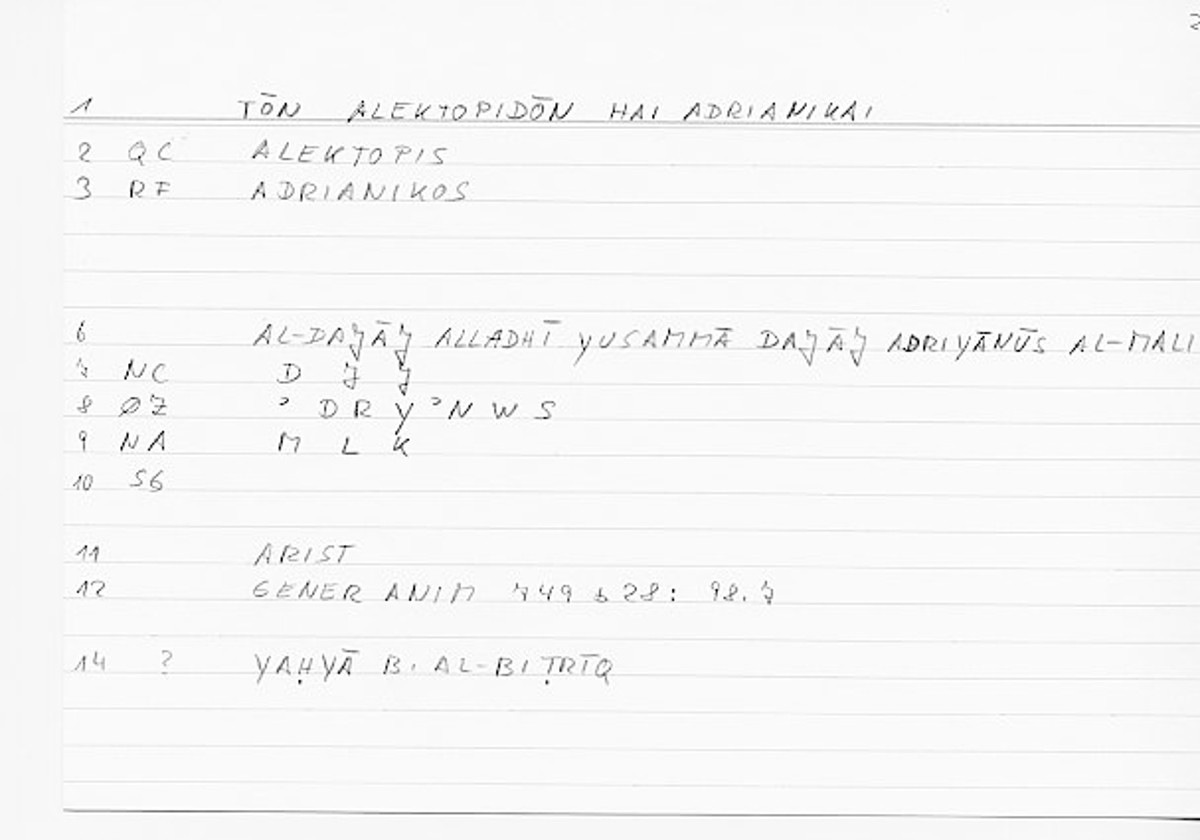 2
1 TŌN ALEKTOPIDŌN HAI ADRIANIKAI
2 QC ALEKTOPIS
3 RF ADRIANIKOS
6 AL-DAJĀJ ALLADHĪ YUSAMMĀ DAJĀJ ADRIYĀNŪS AL-MALI
7 NC D J J
8 ØZ ʾ D R Y ʾ N W S
9 NA M L K
10 S6
11 ARIST
12 GENER ANIM 749 b 28: 98.7
14 ? YAḤYĀ B. AL-BIṬRĪQ